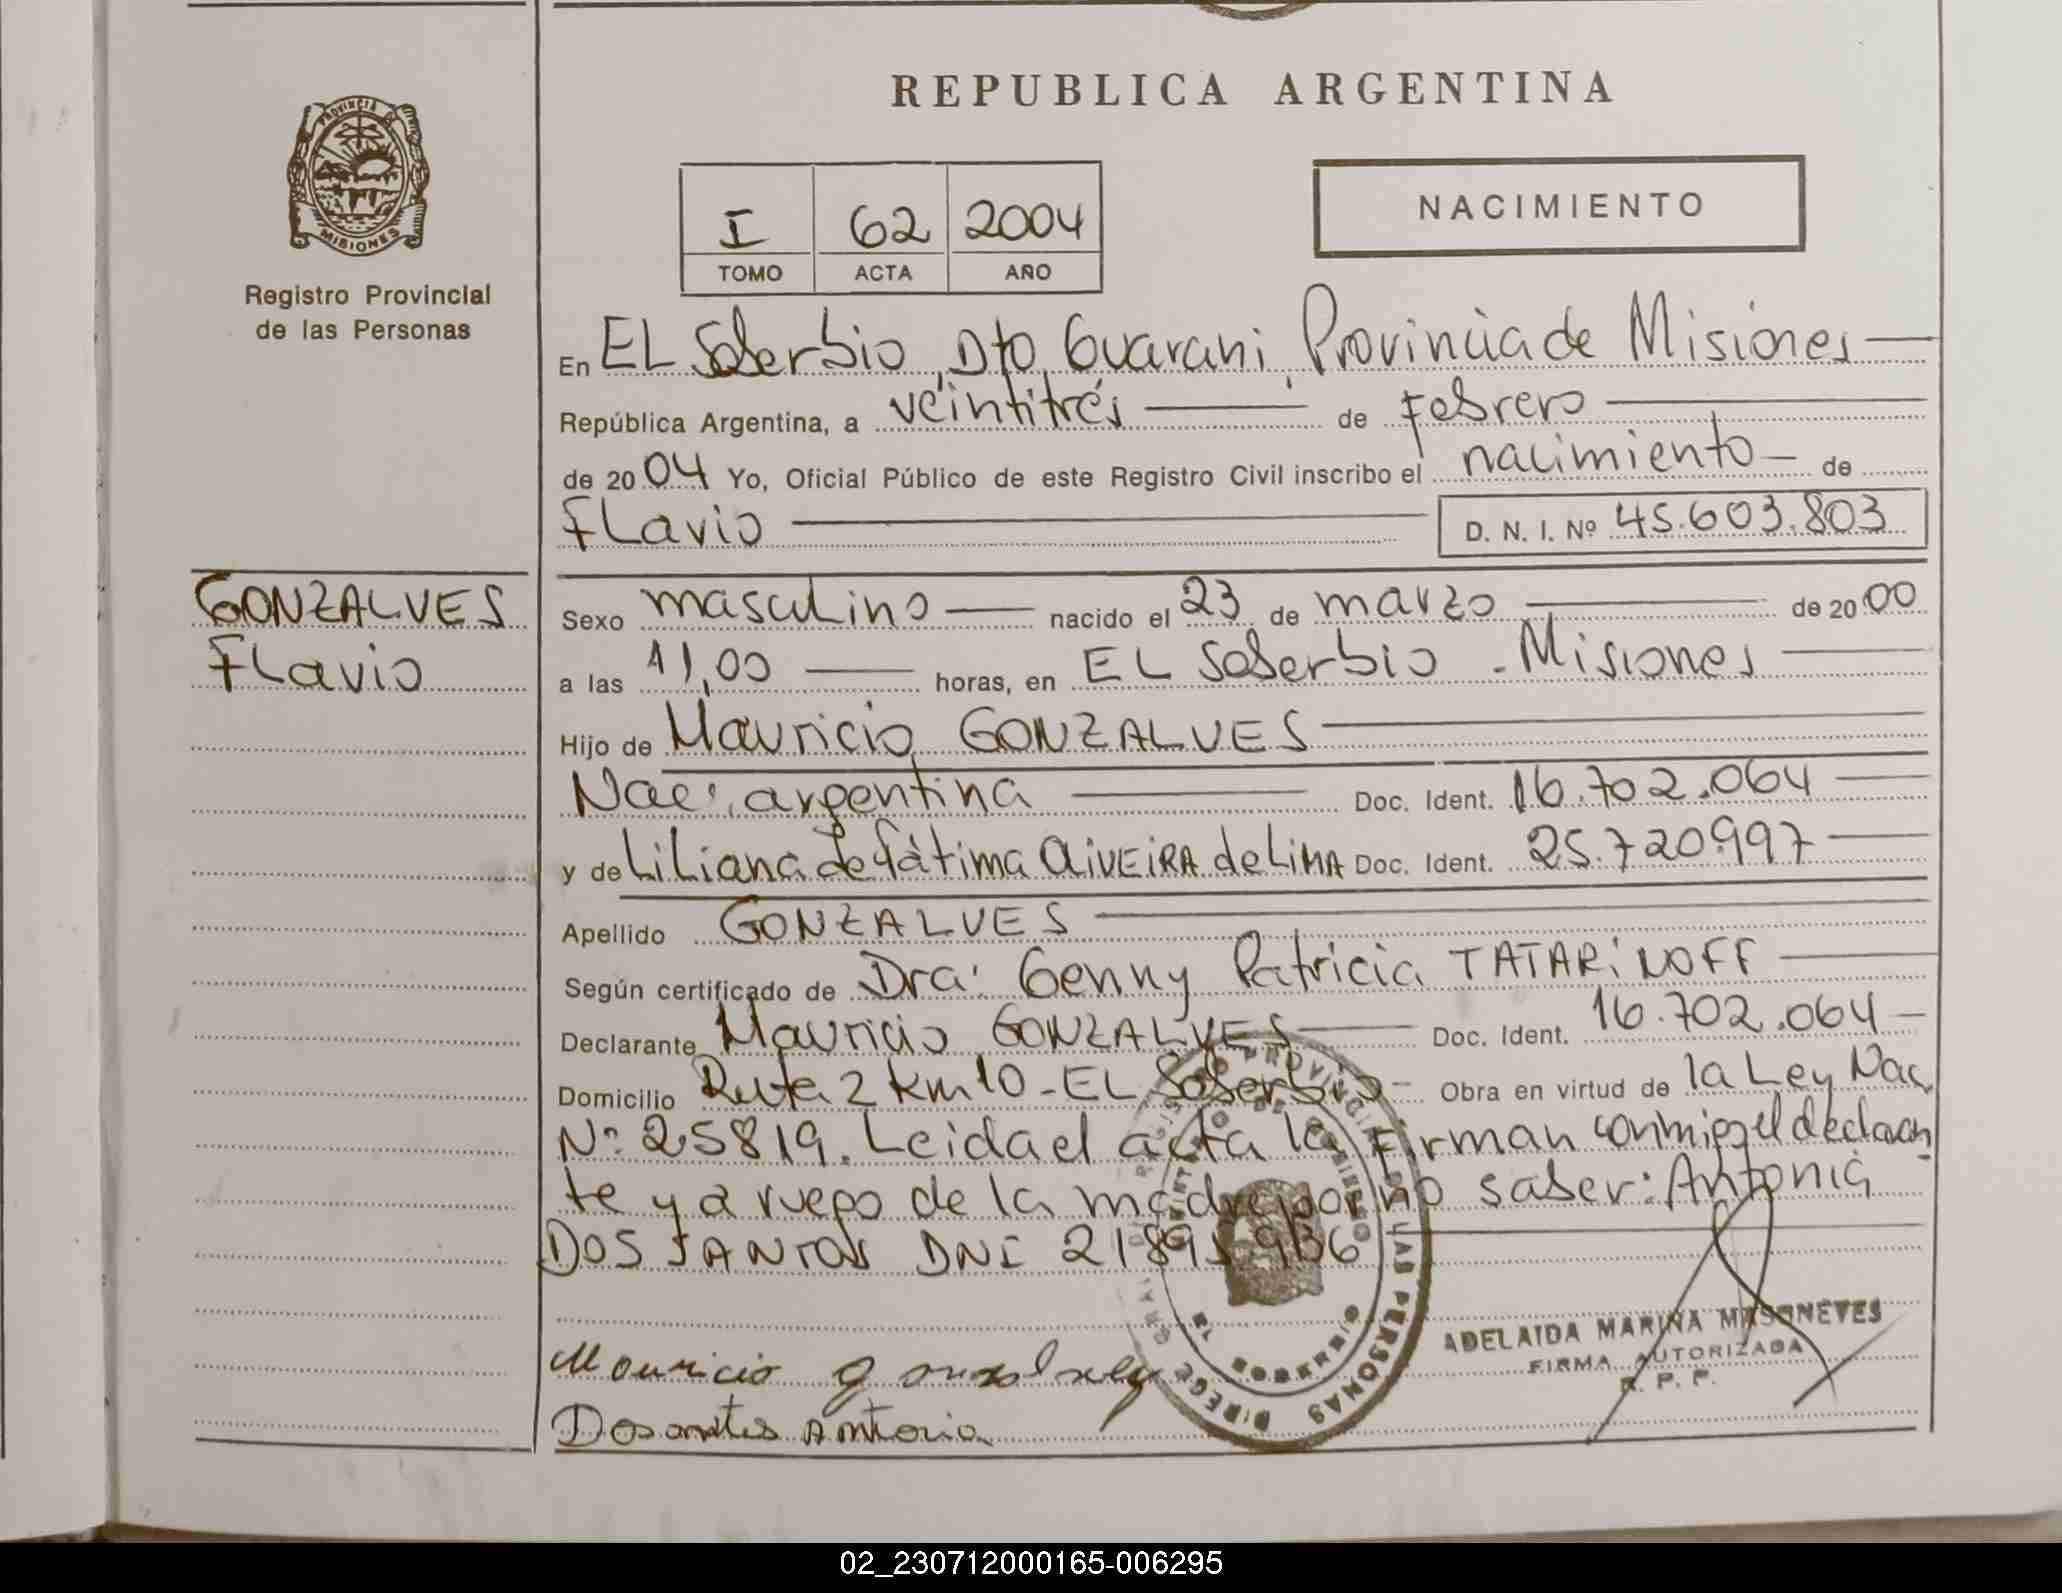 REPUBLICA ARGENTINA
PROVINCIA DE MISIONES
Registro Provincial
de las Personas
I 62 2004
TOMO ACTA AÑO
NACIMIENTO
En EL Soberbio, Dto. Guarani, Provincia de Misiones
República Argentina, a veintitrés de Febrero
de 2004 Yo, Oficial Público de este Registro Civil inscribo el nacimiento de
FLavio D. N. I. Nº 45.603.803
GONZALVES
FLavio
Sexo masculino nacido el 23 de marzo de 2000
a las 11,00 horas, en EL Soberbio - Misiones
Hijo de Mauricio GONZALVES
Nac: argentina Doc. Ident. 16.702.064
y de Liliana de Fátima OliVEiRA de LiMA Doc. Ident. 25.720.997
Apellido GONZALVES
Según certificado de Dra: Genny Patricia TATARiNOFF
Declarante Mauricio GONZALVES Doc. Ident. 16.702.064
Domicilio Ruta 2 km 10 - EL Soberbio Obra en virtud de la Ley Nac.
Nº 25819. Leida el acta la Firman conmigo el declaran
te y a ruego de la madre por no saber: Antonia
DOS SANTOS DNI 21895936
ADELAIDA MARINA MASSNEVES
FIRMA AUTORIZADA
R. P. P.
Mauricio gonzalves
Dosantos Antonia
02_230712000165-006295